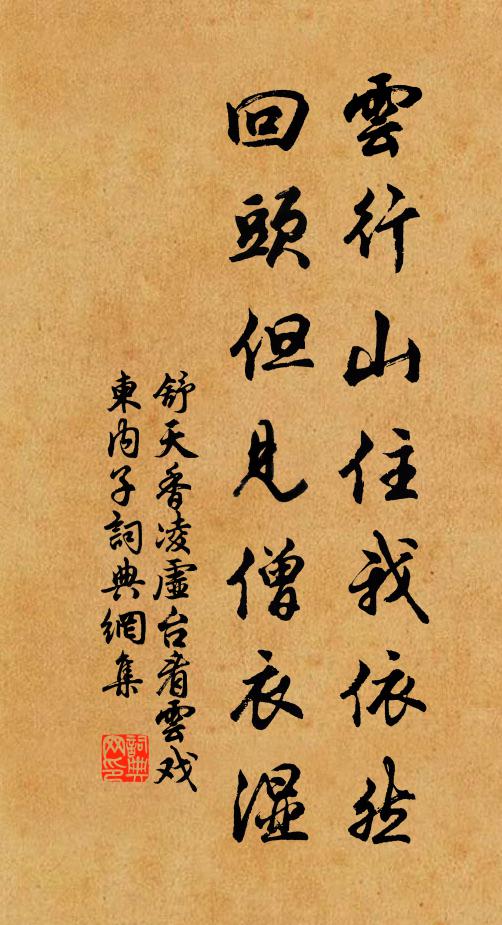 雲行山住我依然
回頭但見僧衣濕
舒天香凌虛台看雲戏
東內子詞典網集
詞典
网印